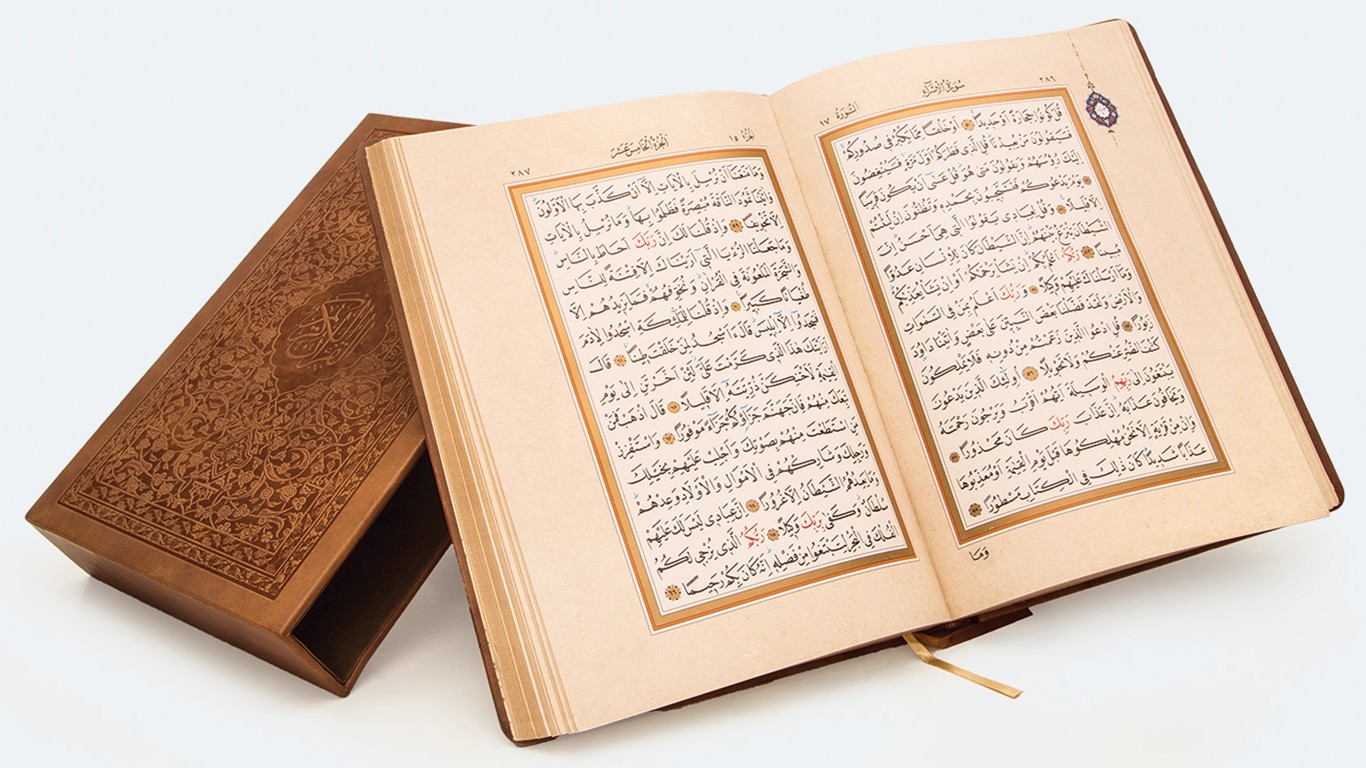 ٢٨٦ سُورَةُ الْإِسْرَاءِ السُّورَةُ ١٧
قُلْ كُونُوا حِجَارَةً اَوْ حَد۪يدًا ٥٠ اَوْ خَلْقًا مِمَّا يَكْبُرُ ف۪ي صُدُورِكُمْ
فَسَيَقُولُونَ مَنْ يُع۪يدُنَا قُلِ الَّذ۪ي فَطَرَكُمْ اَوَّلَ مَرَّةٍ فَسَيُنْغِضُونَ
اِلَيْكَ رُؤُ۫سَهُمْ وَيَقُولُونَ مَتٰى هُوَ قُلْ عَسٰٓى اَنْ يَكُونَ قَر۪يبًا
٥١ يَوْمَ يَدْعُوكُمْ فَتَسْتَج۪يبُونَ بِحَمْدِه۪ وَتَظُنُّونَ اِنْ لَبِثْتُمْ
اِلَّا قَل۪يلًا ٥٢ وَقُلْ لِعِبَاد۪ي يَقُولُوا الَّت۪ي هِيَ اَحْسَنُ اِنَّ
الشَّيْطَانَ يَنْزَغُ بَيْنَهُمْ اِنَّ الشَّيْطَانَ كَانَ لِلْاِنْسَانِ عَدُوًّا
مُب۪ينًا ٥٣ رَبُّكُمْ اَعْلَمُ بِكُمْ اِنْ يَشَأْ يَرْحَمْكُمْ اَوْ اِنْ يَشَأْ يُعَذِّبْكُمْ
وَمَٓا اَرْسَلْنَاكَ عَلَيْهِمْ وَك۪يلًا ٥٤ وَرَبُّكَ اَعْلَمُ بِمَنْ فِي السَّمٰوَاتِ
وَالْاَرْضِ وَلَقَدْ فَضَّلْنَا بَعْضَ النَّبِيّ۪نَ عَلٰى بَعْضٍ وَاٰتَيْنَا دَاوُ۫دَ
زَبُورًا ٥٥ قُلِ ادْعُوا الَّذ۪ينَ زَعَمْتُمْ مِنْ دُونِه۪ فَلَا يَمْلِكُونَ
كَشْفَ الضُّرِّ عَنْكُمْ وَلَا تَحْو۪يلًا ٥٦ اُو۬لٰٓئِكَ الَّذ۪ينَ يَدْعُونَ
يَبْتَغُونَ اِلٰى رَبِّهِمُ الْوَس۪يلَةَ اَيُّهُمْ اَقْرَبُ وَيَرْجُونَ رَحْمَتَهُ
وَيَخَافُونَ عَذَابَهُ اِنَّ عَذَابَ رَبِّكَ كَانَ مَحْذُورًا ٥٧
وَاِنْ مِنْ قَرْيَةٍ اِلَّا نَحْنُ مُهْلِكُوهَا قَبْلَ يَوْمِ الْقِيٰمَةِ اَوْ مُعَذِّبُوهَا
عَذَابًا شَد۪يدًا كَانَ ذٰلِكَ فِي الْكِتَابِ مَسْطُورًا ٥٨
وَمَا
الْجُزْءُ ١٥ اَلْجُزْءُ الْخَامِسَ عَشَرَ ٢٨٧
وَمَا مَنَعَنَٓا اَنْ نُرْسِلَ بِالْاٰيَاتِ اِلَّٓا اَنْ كَذَّبَ بِهَا الْاَوَّلُونَ
وَاٰتَيْنَا ثَمُودَ النَّاقَةَ مُبْصِرَةً فَظَلَمُوا بِهَا وَمَا نُرْسِلُ بِالْاٰيَاتِ
اِلَّا تَخْو۪يفًا ٥٩ وَاِذْ قُلْنَا لَكَ اِنَّ رَبَّكَ اَحَاطَ بِالنَّاسِ
وَمَا جَعَلْنَا الرُّءْيَا الَّت۪ٓي اَرَيْنَاكَ اِلَّا فِتْنَةً لِلنَّاسِ
وَالشَّجَرَةَ الْمَلْعُونَةَ فِي الْقُرْاٰنِ وَنُخَوِّفُهُمْ فَمَا يَز۪يدُهُمْ اِلَّا
طُغْيَانًا كَب۪يرًا ٦٠ وَاِذْ قُلْنَا لِلْمَلٰٓئِكَةِ اسْجُدُوا لِاٰدَمَ
فَسَجَدُٓوا اِلَّٓا اِبْل۪يسَ قَالَ ءَاَسْجُدُ لِمَنْ خَلَقْتَ ط۪ينًا ٦١ قَالَ
اَرَاَيْتَكَ هٰذَا الَّذ۪ي كَرَّمْتَ عَلَيَّ لَئِنْ اَخَّرْتَنِ اِلٰى يَوْمِ
الْقِيٰمَةِ لَاَحْتَنِكَنَّ ذُرِّيَّتَهُٓ اِلَّا قَل۪يلًا ٦٢ قَالَ اذْهَبْ فَمَنْ
تَبِعَكَ مِنْهُمْ فَاِنَّ جَهَنَّمَ جَزَٓاؤُ۬كُمْ جَزَٓاءً مَوْفُورًا ٦٣ وَاسْتَفْزِزْ
مَنِ اسْتَطَعْتَ مِنْهُمْ بِصَوْتِكَ وَاَجْلِبْ عَلَيْهِمْ بِخَيْلِكَ
وَرَجِلِكَ وَشَارِكْهُمْ فِي الْاَمْوَالِ وَالْاَوْلَادِ وَعِدْهُمْ
وَمَا يَعِدُهُمُ الشَّيْطَانُ اِلَّا غُرُورًا ٦٤ اِنَّ عِبَاد۪ي لَيْسَ لَكَ عَلَيْهِمْ
سُلْطَانٌ وَكَفٰى بِرَبِّكَ وَك۪يلًا ٦٥ رَبُّكُمُ الَّذ۪ي يُزْج۪ي لَكُمُ
الْفُلْكَ فِي الْبَحْرِ لِتَبْتَغُوا مِنْ فَضْلِه۪ اِنَّهُ كَانَ بِكُمْ رَح۪يمًا ٦٦